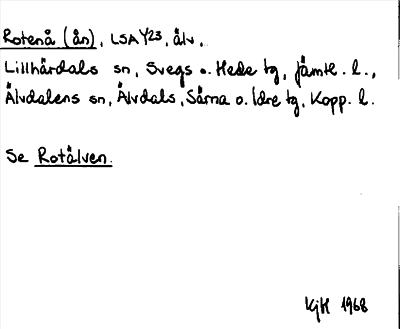 Rotenå (ån), LSA Y23, älv,
Lillhärdals sn, Svegs o. Hede tg, Jämtl. l.,
Älvdalens sn, Älvdals, Särna o. Idre tg, Kopp. l.
Se Rotälven.
KjH 1968